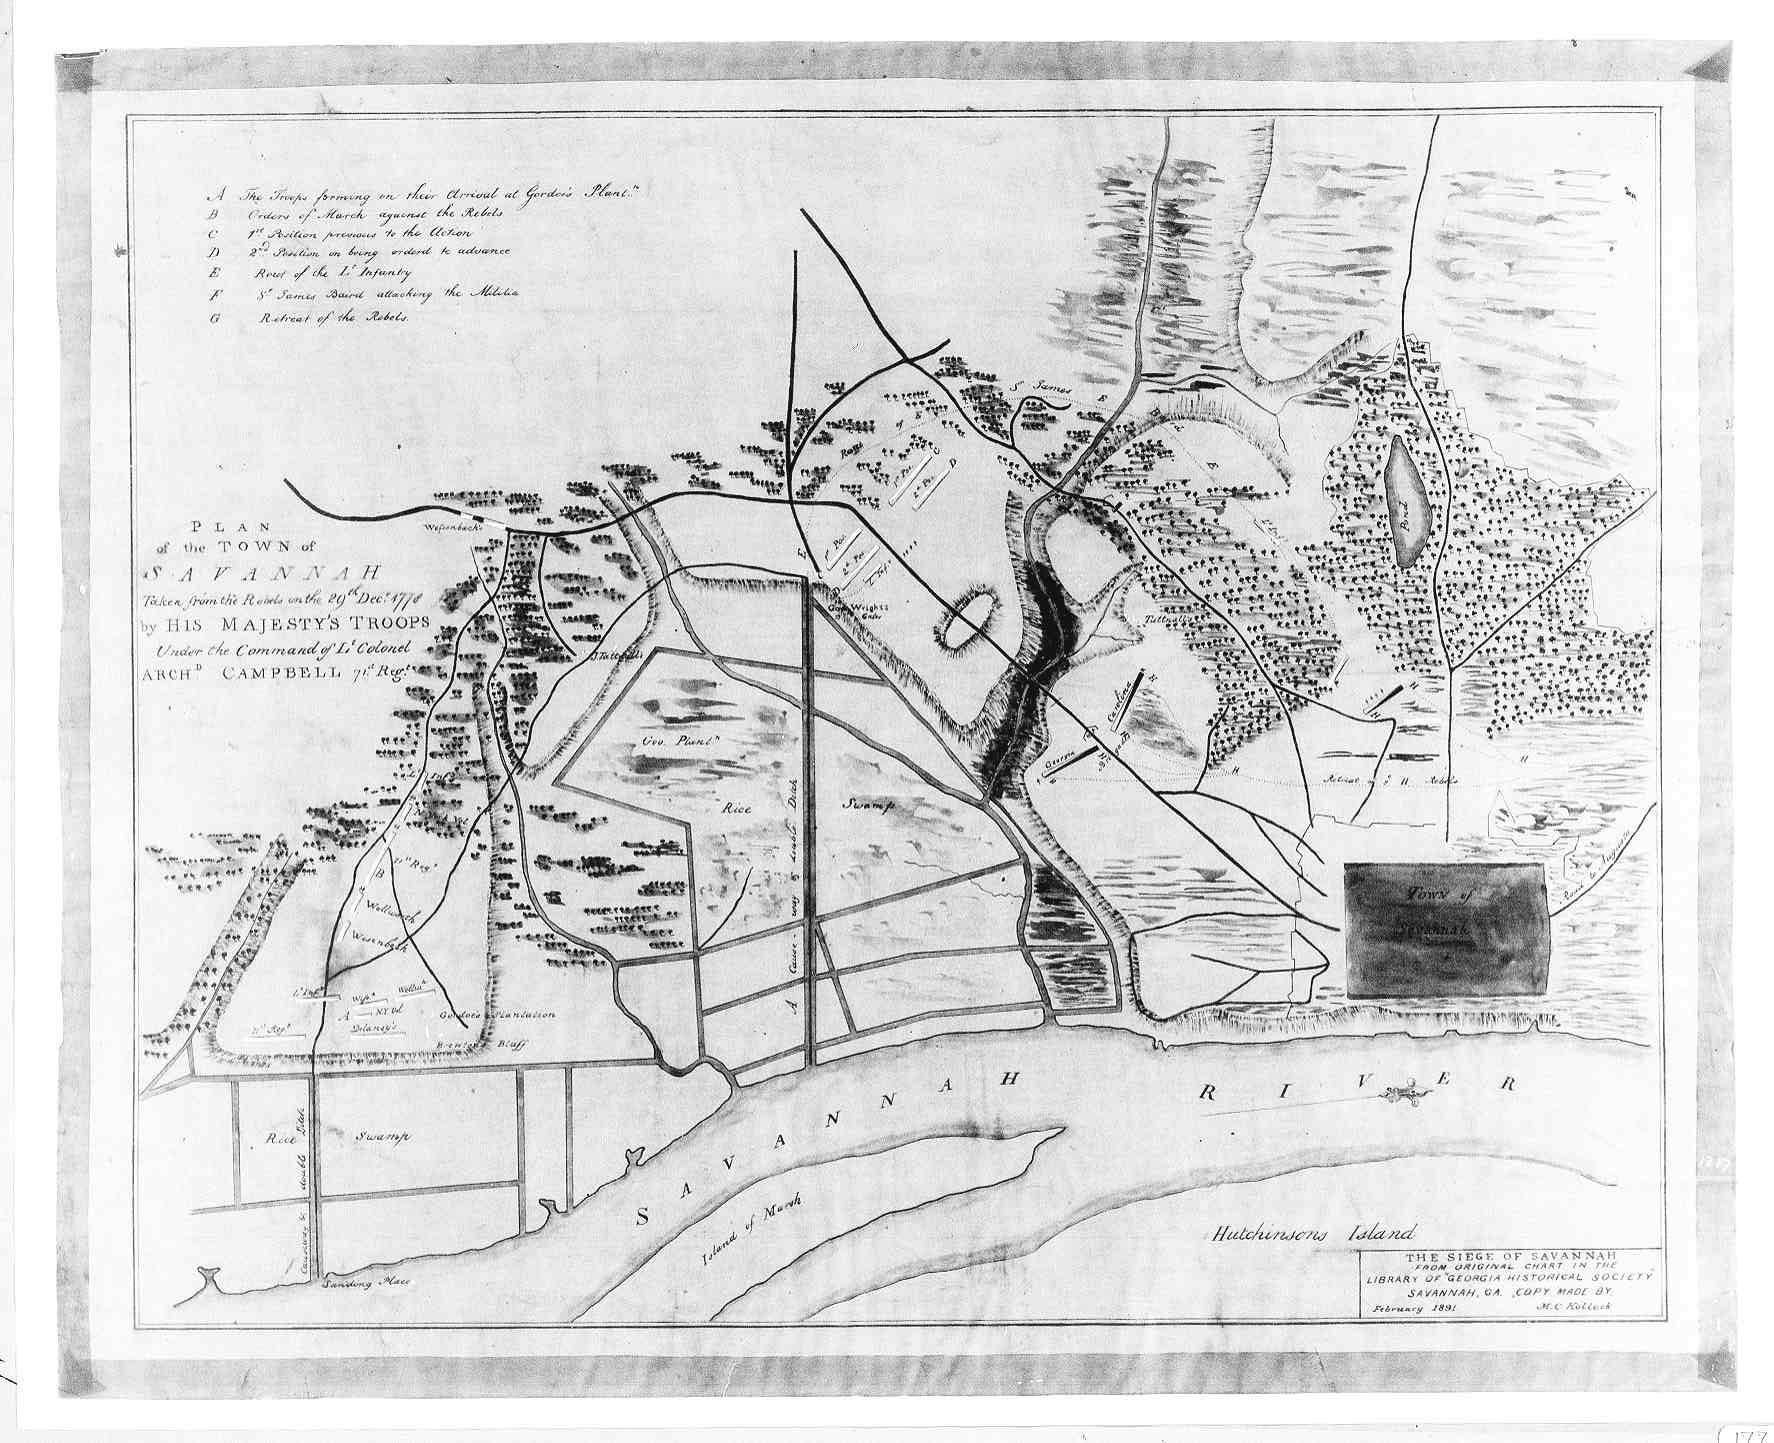 A The Troops forming on their Arrival at Gordoes Plant.n
B Orders of March against the Rebels
C 1st Position previous to the Action
D 2nd Position on being orderd to advance
E Rout of the Lt Infantry
F Sr James Baird attacking the Militia
G Retreat of the Rebels.
PLAN
of the TOWN of
SAVANNAH
Taken from the Rebels on the 29th Decr. 1778
by HIS MAJESTY'S TROOPS
Under the Command of Lt Colonel
ARCHD CAMPBELL 71st Regt.
Sr James
E
E
of
E
C
D
1st Pos.
2nd Pos.
Pond
E
1st Pos.
2nd Pos.
Gov. Wrights
Gates
Tattnalls
J. Tattnalls
Carolina
H
Georgia
H
H
Retreat of H Rebels
H
Gov. Plantn
Rice Swamp
Cause-way & double Ditch
A
Town of
Savannah
Road to Augusta
71st Regt
B
Wellworth
Wesenbach
Lt Inf.
A
N.Y. Vol
Delaney's
71st Regt
Gordoes Plantation
Brewtons Bluff
Rice Swamp
Causeway & double Ditch
Landing Place
SAVANNAH RIVER
Island of Marsh
Hutchinsons Island
THE SIEGE OF SAVANNAH
FROM ORIGINAL CHART IN THE
LIBRARY OF "GEORGIA HISTORICAL SOCIETY"
SAVANNAH, GA. COPY MADE BY.
February 1891 M.C Kollock